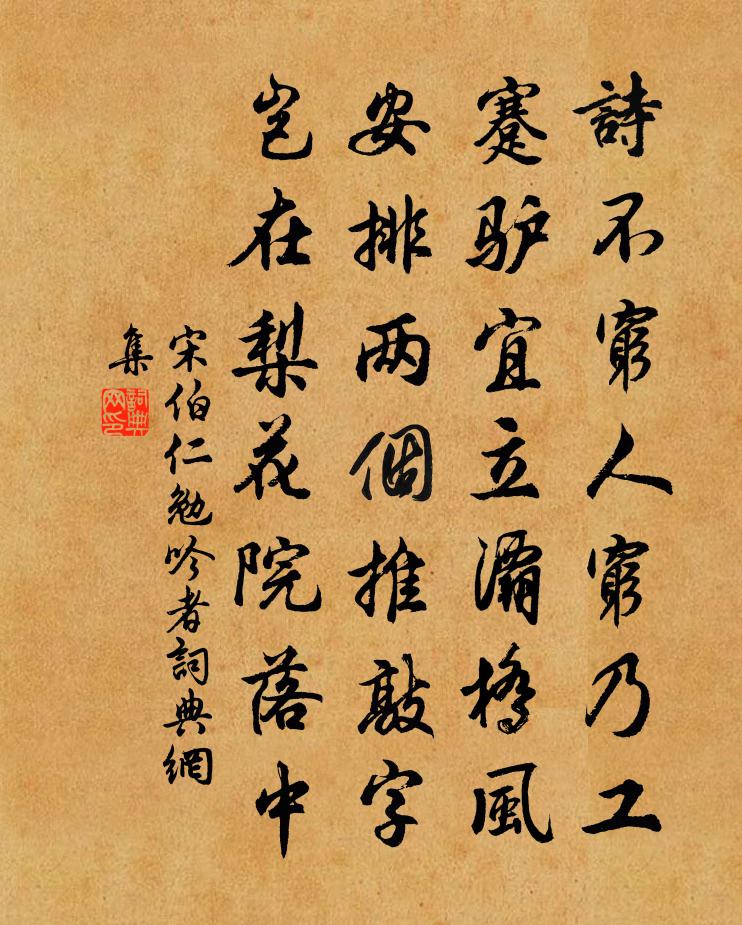 詩不窮人窮乃工
蹇驴宜立灞橋風
安排两個推敲字
岂在梨花院落中
宋伯仁勉吟者詞典網
集
詞典
网印